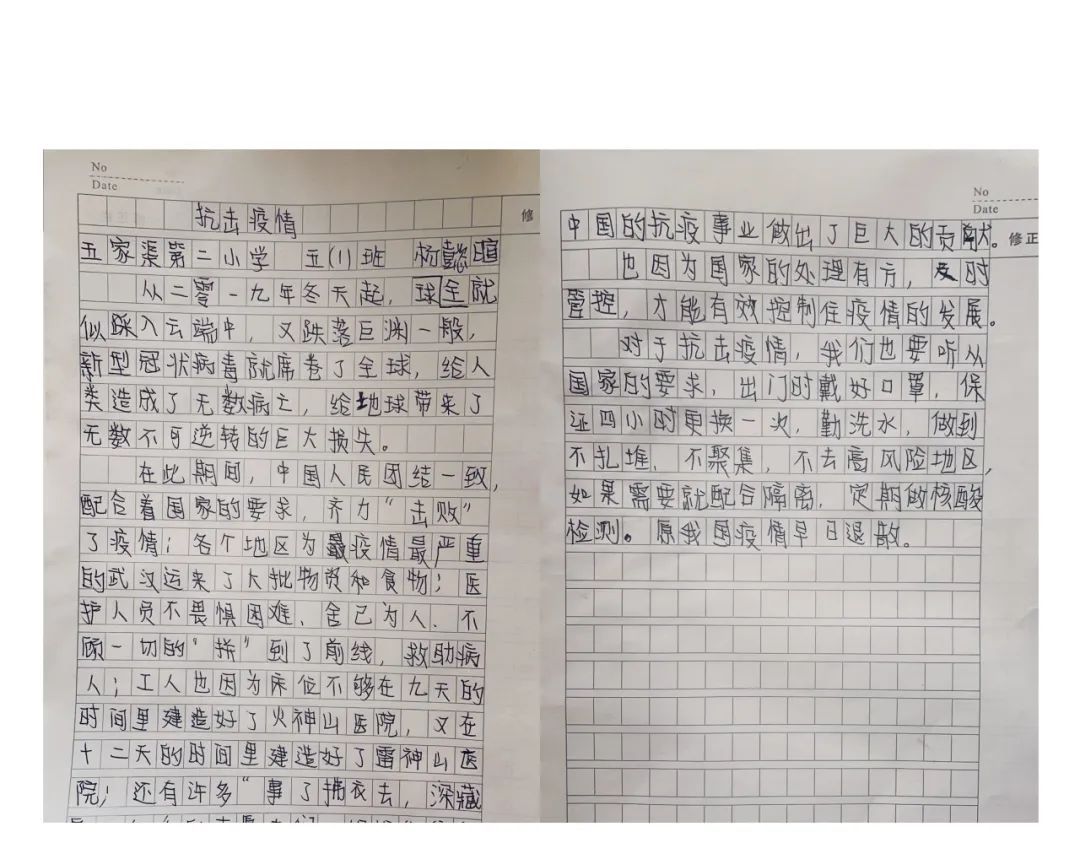 No
Date
抗击疫情
修
五家渠第二小学 五(1)班 杨懿暄
从二零一九年冬天起，球全就
似踩入云端中，又跌落巨渊一般，
新型冠状病毒就席卷了全球，给人
类造成了无数病亡，给地球带来了
无数不可逆转的巨大损失。
在此期间，中国人民团结一致，
配合着国家的要求，齐力“击败”
了疫情；各个地区为最疫情最严重
的武汉运来了大批物资和食物；医
护人员不畏惧困难，舍己为人，不
顾一切的“拼”到了前线，救助病
人；工人也因为床位不够在九天的
时间里建造好了火神山医院，又在
十二天的时间里建造好了雷神山医
院；还有许多“事了拂衣去，深藏
No
Date
中国的抗疫事业做出了巨大的贡献。
修正
也因为国家的处理有方，及时
管控，才能有效控制住疫情的发展。
对于抗击疫情，我们也要听从
国家的要求，出门时戴好口罩，保
证四小时更换一次，勤洗水，做到
不扎堆，不聚集，不去高风险地区，
如果需要就配合隔离，定期做核酸
检测。原我国疫情早日退散。